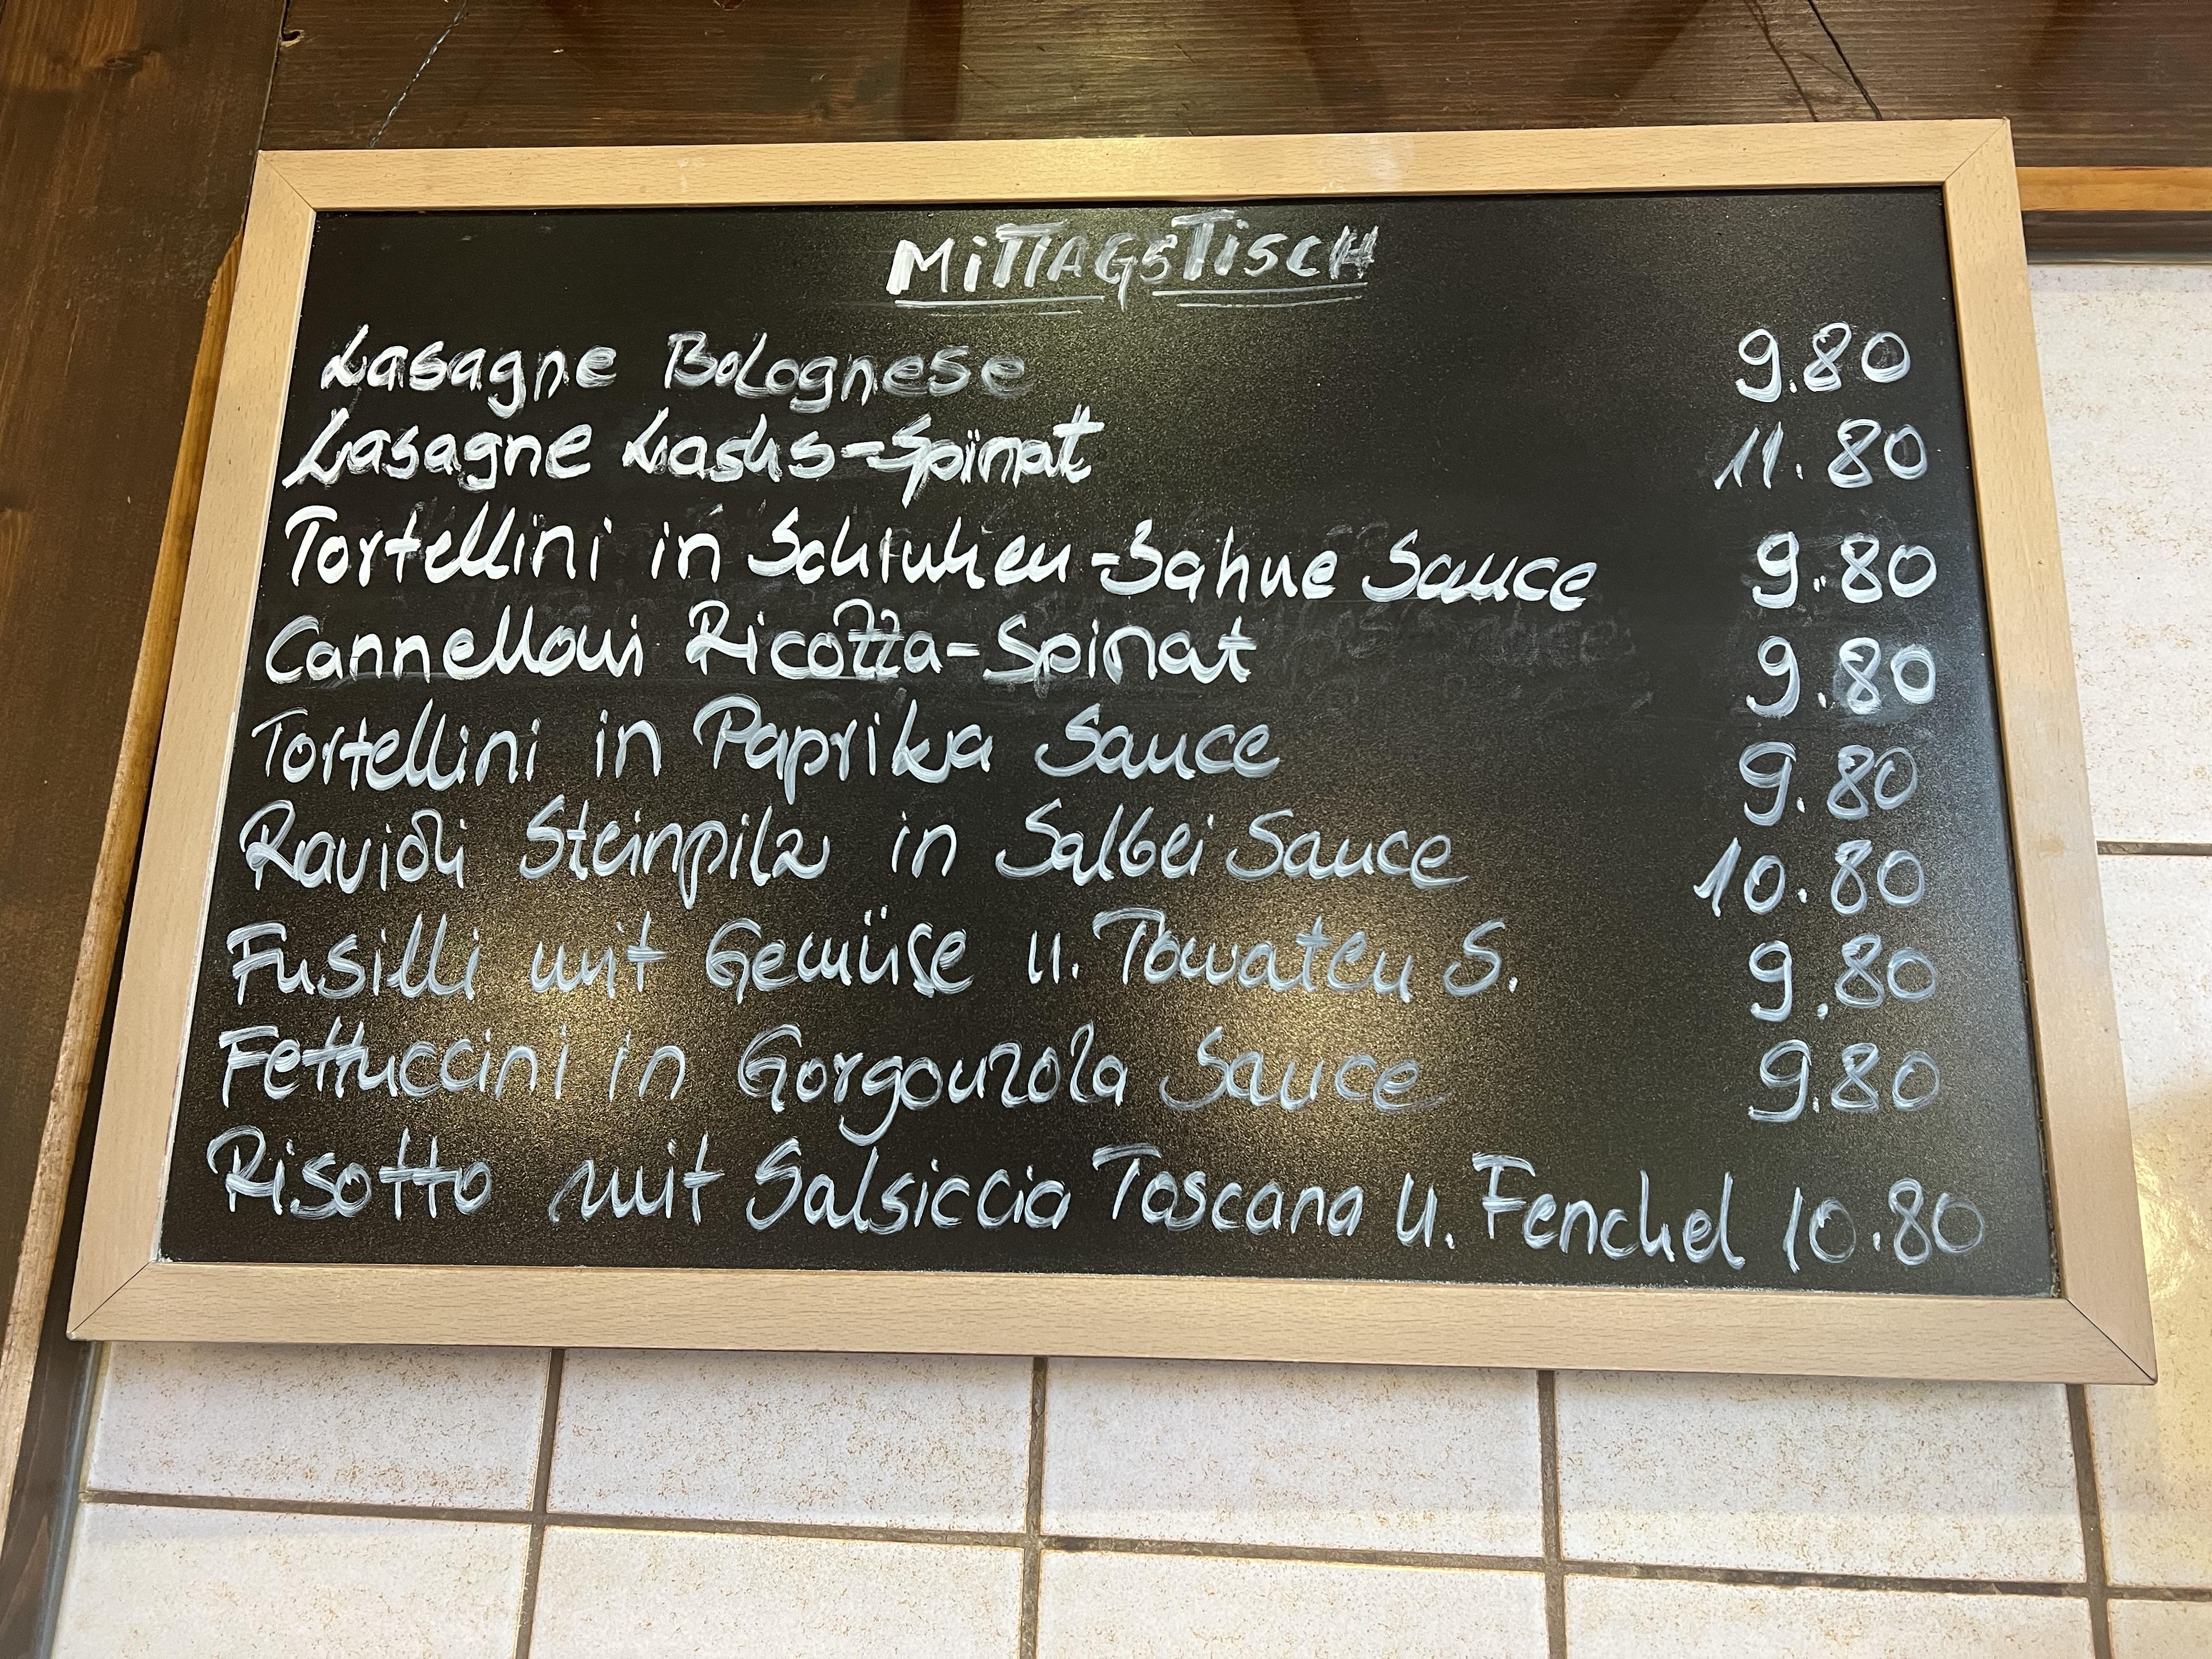 MiTTAGSTiSCH
Lasagne Bolognese 9.80
Lasagne Lachs-Spinat 11.80
Tortellini in Schinken-Sahne Sauce 9.80
Cannelloni Ricotta-Spinat 9.80
Tortellini in Paprika Sauce 9.80
Ravioli Steinpilz in Salbei Sauce 10.80
Fusilli mit Gemüse u. Tomaten S. 9.80
Fettuccini in Gorgonzola Sauce 9.80
Risotto mit Salsiccia Toscana u. Fenchel 10.80